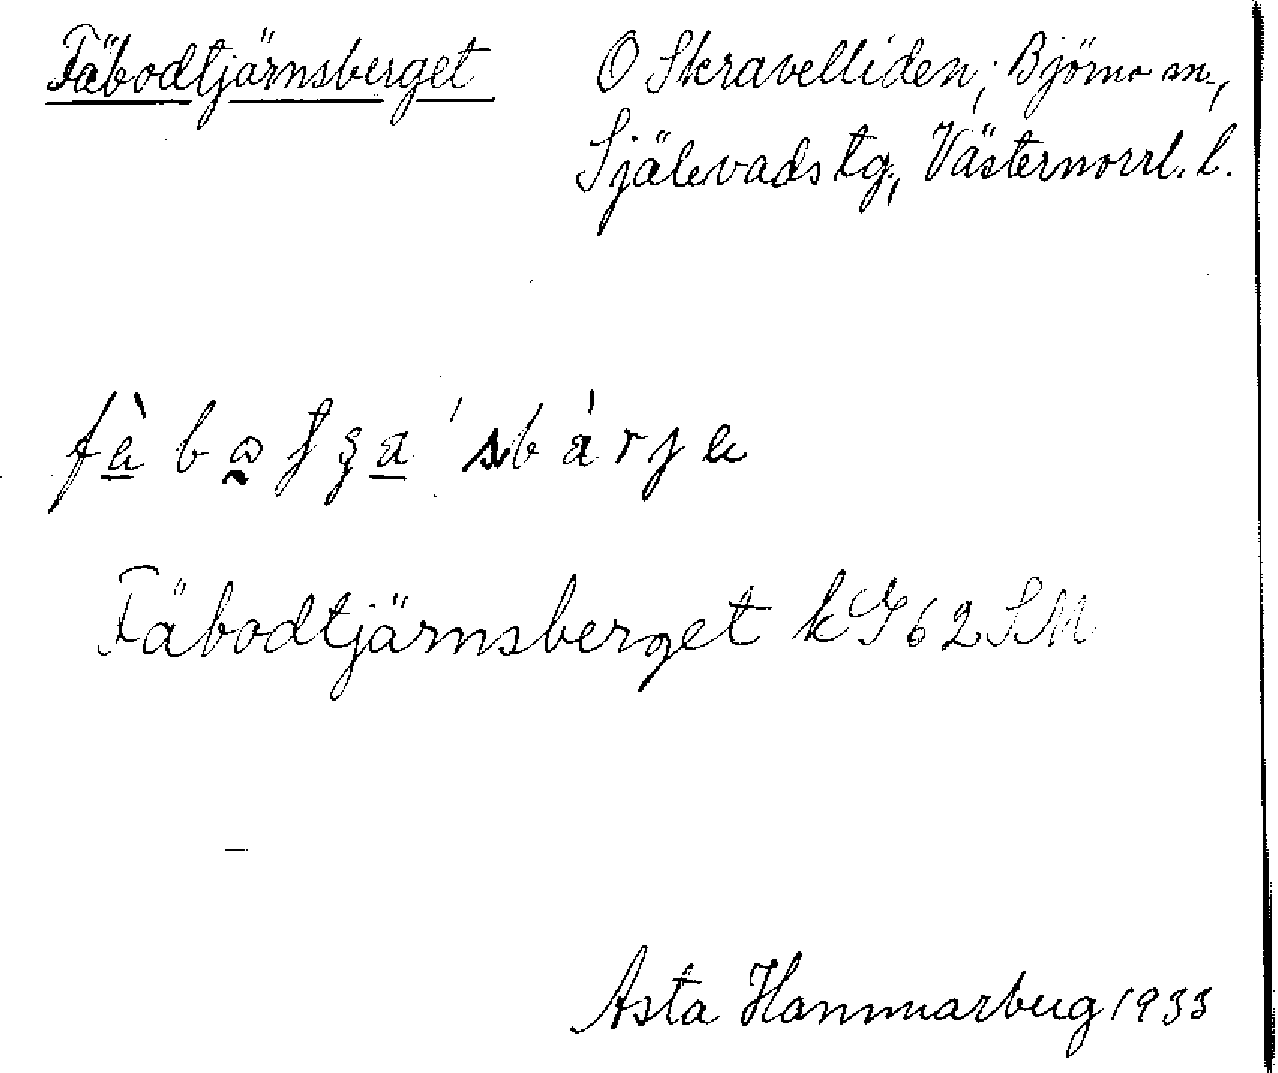 Fäbodtjärnsberget O Skravelliden, Björna sn.,
Själevads tg., Västernorrl. l.
Fäbodtjärnsberget kG62SM
Asta Hammarberg 1933